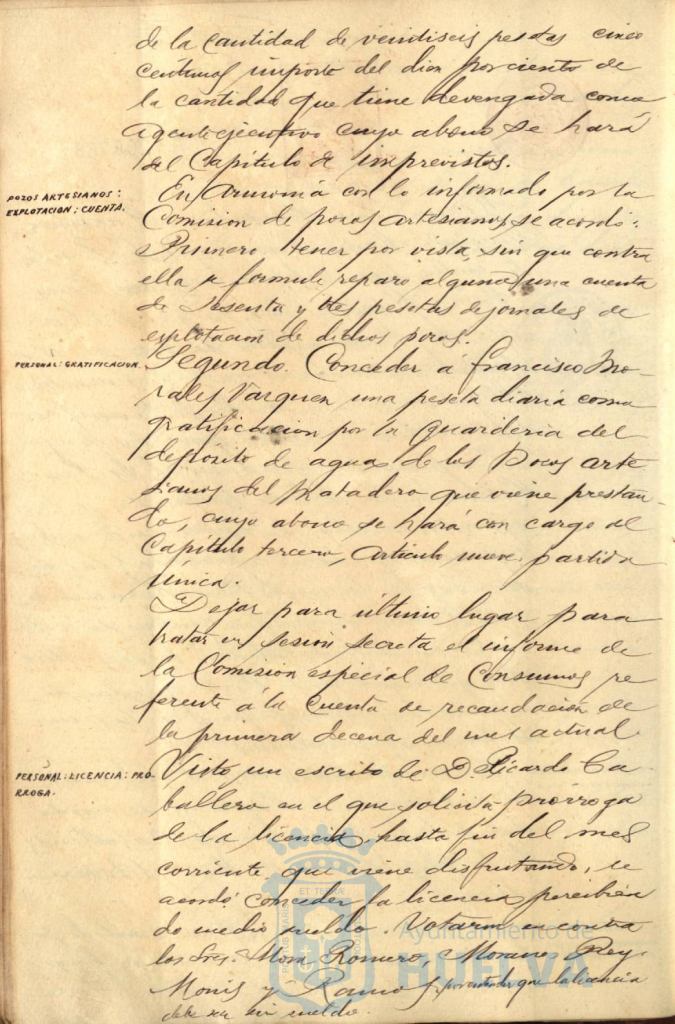 de la cantidad de veintiseis pesetas cinco
centimos importe del diez por ciento de
la cantidad que tiene devengada como
agente ejecutivo cuyo abono se hará
del Capítulo de imprevistos.
POZOS ARTESIANOS:
EXPLOTACION; CUENTA.
En armonía con lo informado por la
Comision de pozos artesianos, se acordó:
Primero tener por vista, sin que contra
ella se formule reparo alguno, una cuenta
de sesenta y tres pesetas de jornales de
explotacion de dichos pozos.
PERSONAL: GRATIFICACION.
Segundo. Conceder á Francisco Mo-
rales Vazquez una peseta diaria como
gratificacion por la guarderia del
depósito de aguas de los Pozos arte
sianos del Matadero que viene prestan-
do, cuyo abono se hará con cargo al
Capítulo tercero, Artículo nueve partida
única.
Dejar para último lugar para
tratar en sesión secreta el informe de
la Comision especial de Consumos re
ferente á la cuenta de recaudación de
la primera decena del mes actual.
PERSONAL: LICENCIA: PRO
RROGA.
Visto un escrito de D. Ricardo Ca-
ballero en el que solicita prórroga
de la licencia, hasta fin del mes
corriente que viene disfrutando, se
acordó conceder la licencia percibien
do medio sueldo. Votaron en contra
los Sres. Mora Romero, Moreno, Rey,
Monis y Ramos por entender que la licencia
debe ser sin sueldo.
Ayuntamiento de
HUELVA